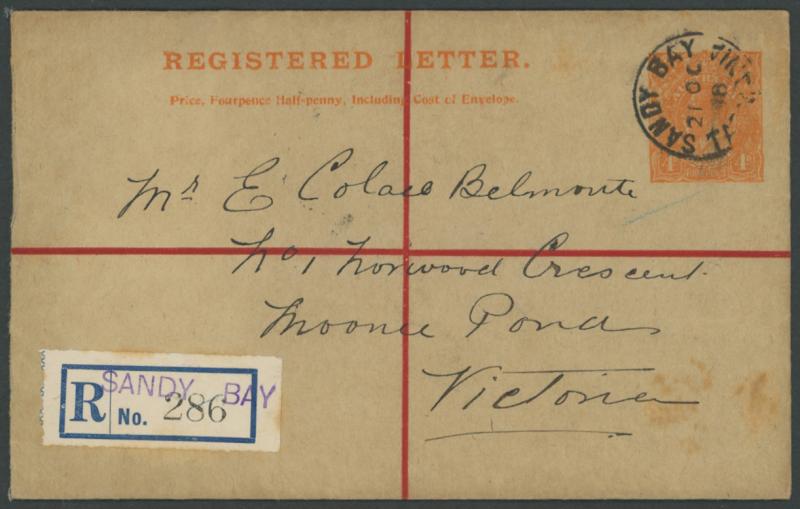 REGISTERED LETTER.
Price, Fourpence Half-penny, Including Cost of Envelope.
SANDY BAY
21 OC
18
4
4
Mr E Colace Belmonte
No 1 Norwood Crescent
Moonee Ponds
Victoria
SANDY BAY
R No. 286